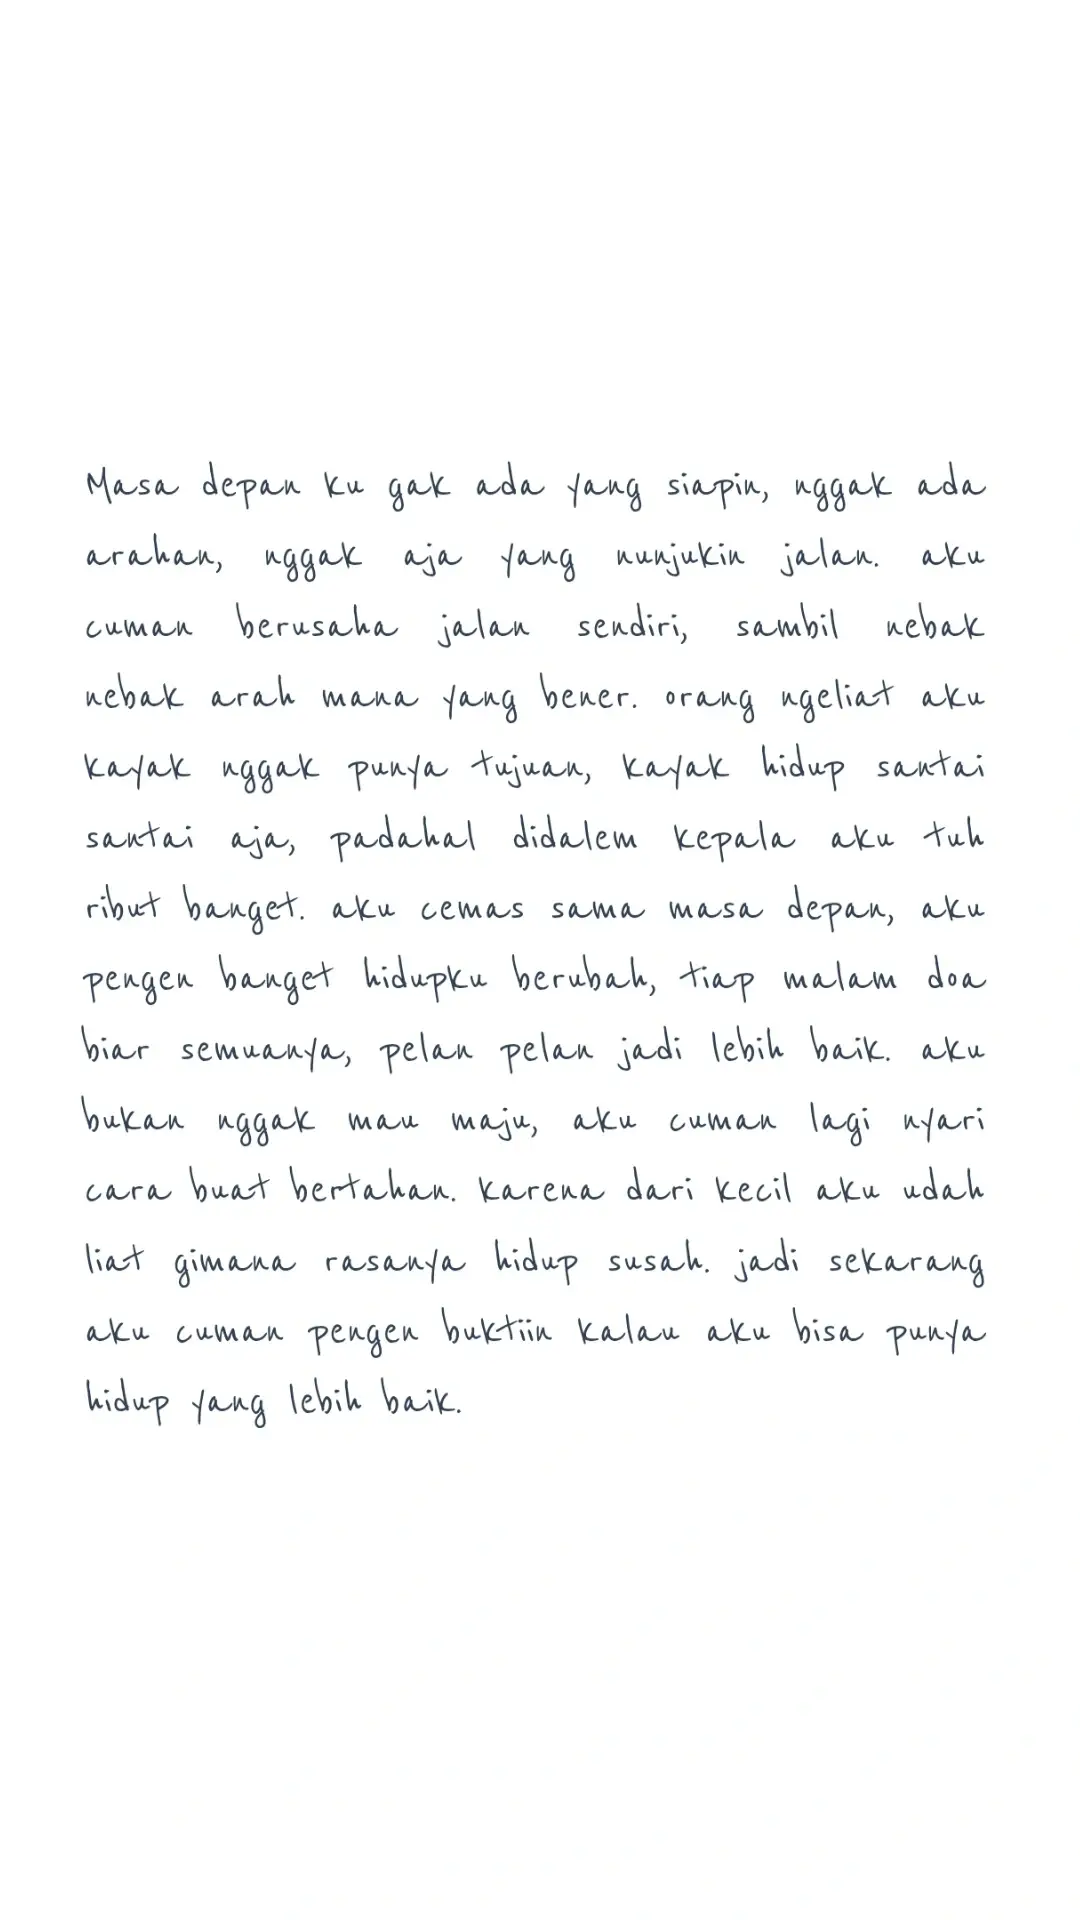 Masa depan ku gak ada yang siapin, nggak ada
arahan, nggak aja yang nunjukin jalan. aku
cuman berusaha jalan sendiri, sambil nebak
nebak arah mana yang bener. orang ngeliat aku
kayak nggak punya tujuan, kayak hidup santai
santai aja, padahal didalem kepala aku tuh
ribut banget. aku cemas sama masa depan, aku
pengen banget hidupku berubah, tiap malam doa
biar semuanya, pelan pelan jadi lebih baik. aku
bukan nggak mau maju, aku cuman lagi nyari
cara buat bertahan. karena dari kecil aku udah
liat gimana rasanya hidup susah. jadi sekarang
aku cuman pengen buktiin kalau aku bisa punya
hidup yang lebih baik.